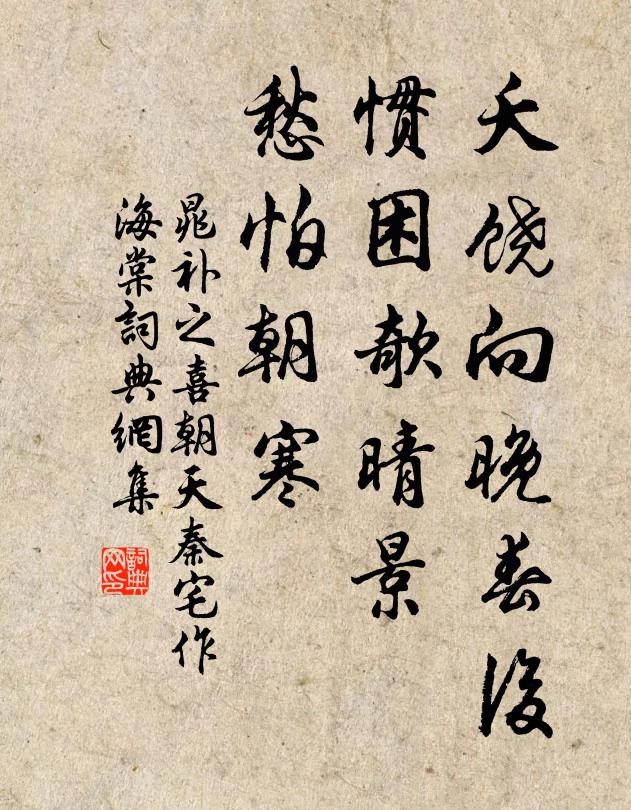 夭饶向晚春後
惯困欹晴景
愁怕朝寒
晁补之喜朝天秦宅作
海棠詞典網集
詞典网印